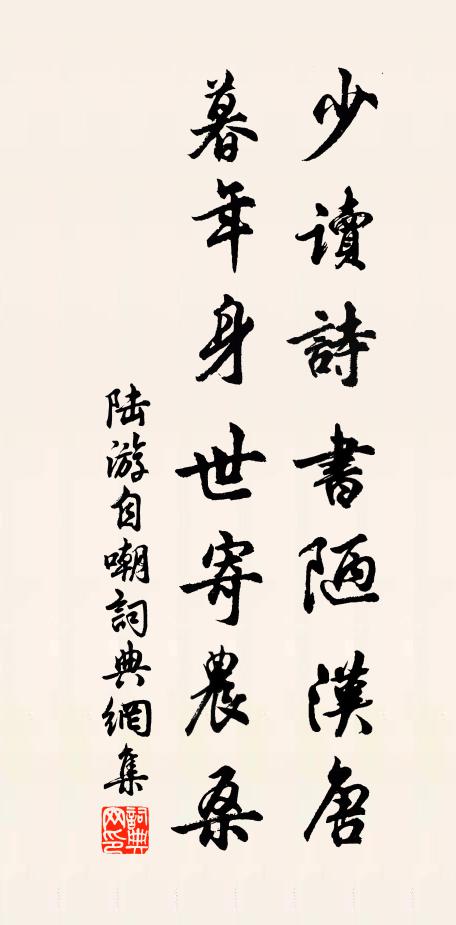 少讀詩書陋漢唐
暮年身世寄農桑
陆游自嘲詞典網集
詞典網印